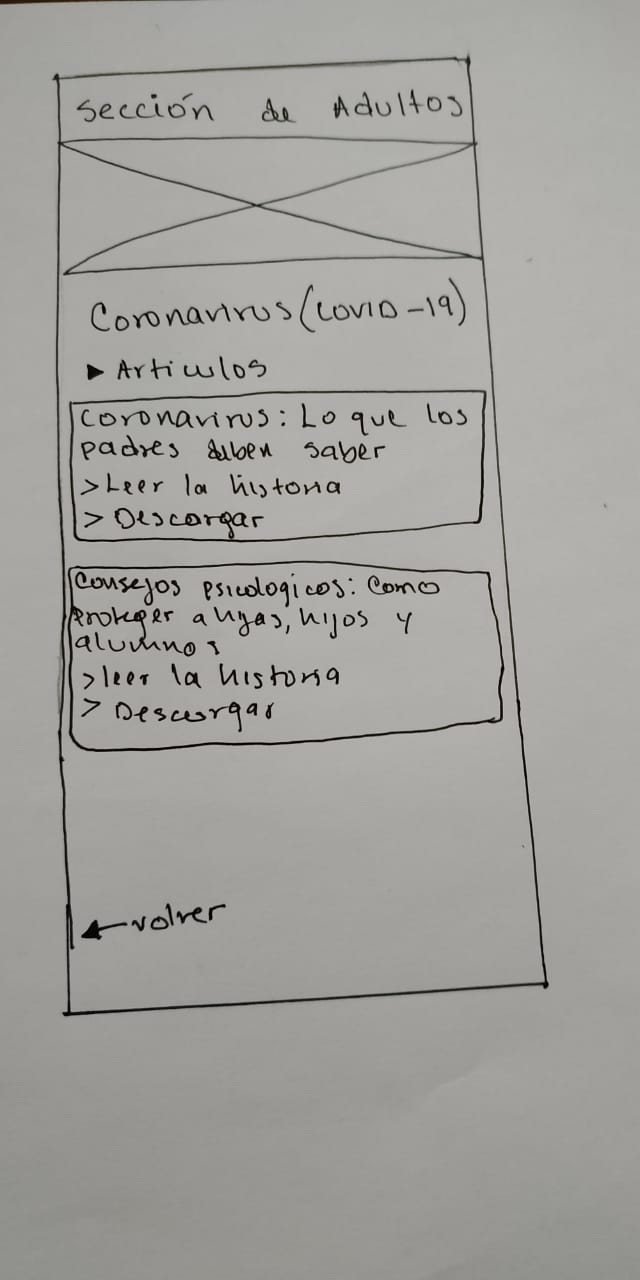 Sección de Adultos
Coronavirus (COVID-19)
▶ Articulos
Coronavirus: Lo que los
padres deben saber
>Leer la historia
> Descargar
Consejos psicologicos: Como
proteger a hijas, hijos y
alumnos
>leer la historia
> Descargar
← volver